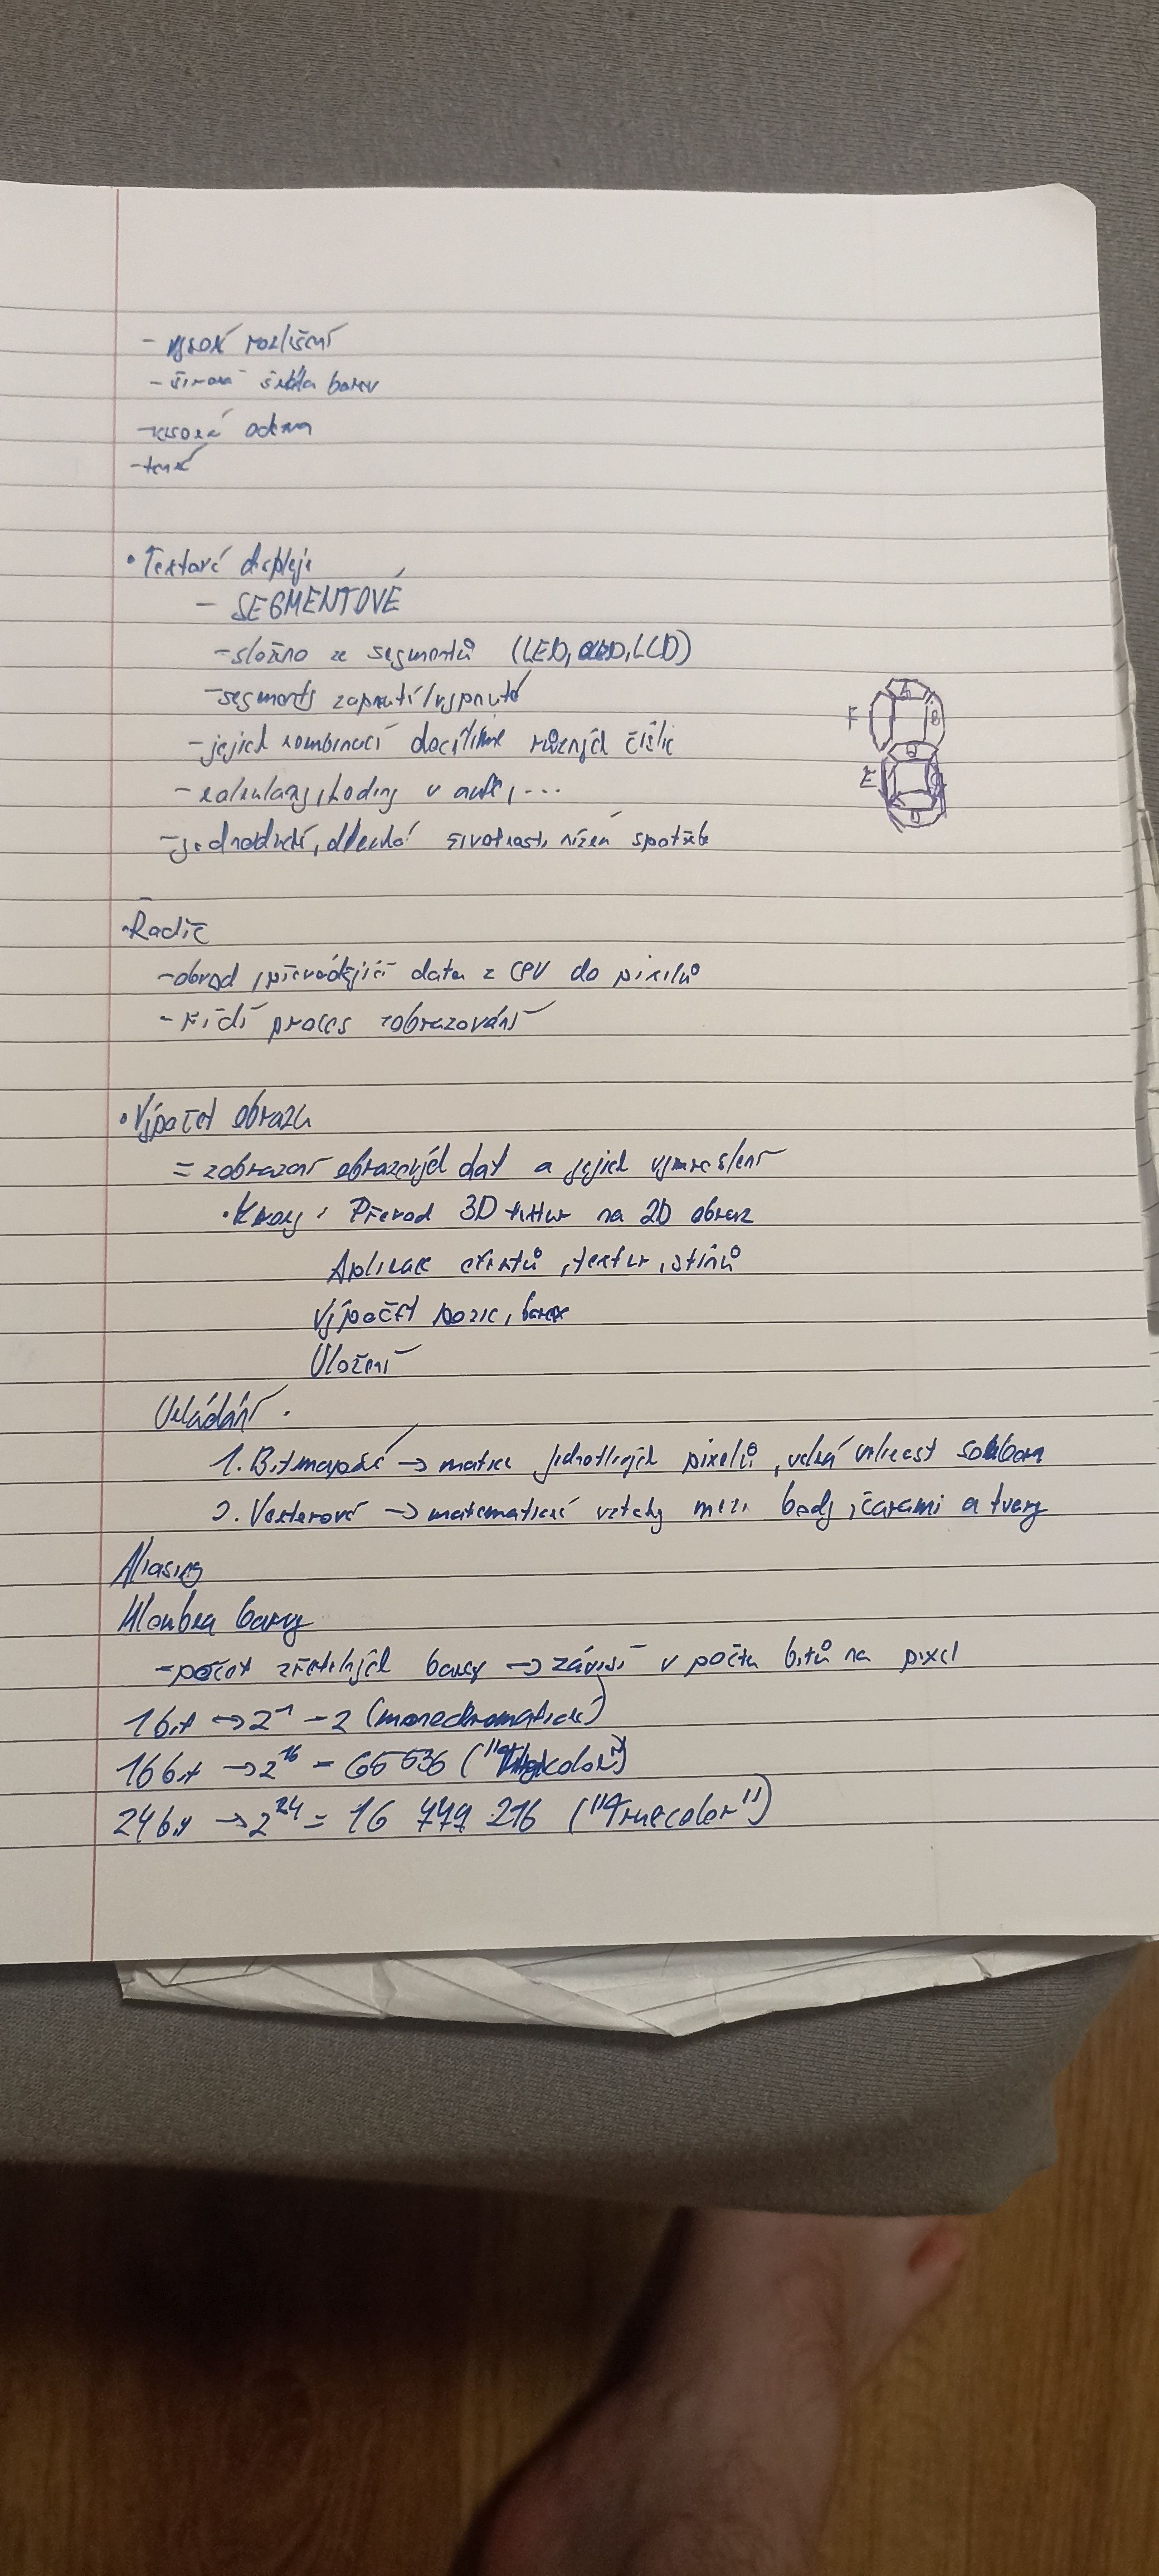 - vysoké rozlišení
- široká škála barev
- vysoká odezva
- tenké
• Textové displeje
- SEGMENTOVÉ
- složeno ze segmentů (LED, OLED, LCD)
- segmenty zapnuté/vypnuté
- jejich kombinací docílíme různých číslic
- kalkulačky, hodiny v autě, ...
- jednoduché, dlouhá životnost, nízká spotřeba
F
A
B
G
E
D
• Řadič
- obvod, převádějící data z CPU do pixelů
- řídí proces zobrazování
• Výpočet obrazu
= zobrazení obrazových dat a jejich vykreslení
• Kroky: Převod 3D textur na 2D obraz
Aplikace efektů, textur, stínů
Výpočet pozic, barev
Uložení
Ukládání:
1. Bitmapové → matice jednotlivých pixelů, velká velikost souboru
2. Vektorové → matematické vztahy mezi body, čarami a tvary
Aliasing
Hloubka barvy
- počet zřetelných barev → závisí v počtu bitů na pixel
1 bit → 2^1 = 2 (monochromatické)
16 bit → 2^16 = 65 536 ("Highcolor")
24 bit → 2^24 = 16 777 216 ("Truecolor")